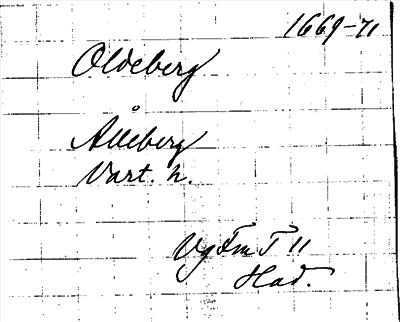 1669-71
Oldeberg
Ålleberg
Vart. h.
Vg Fm T 11
Had.